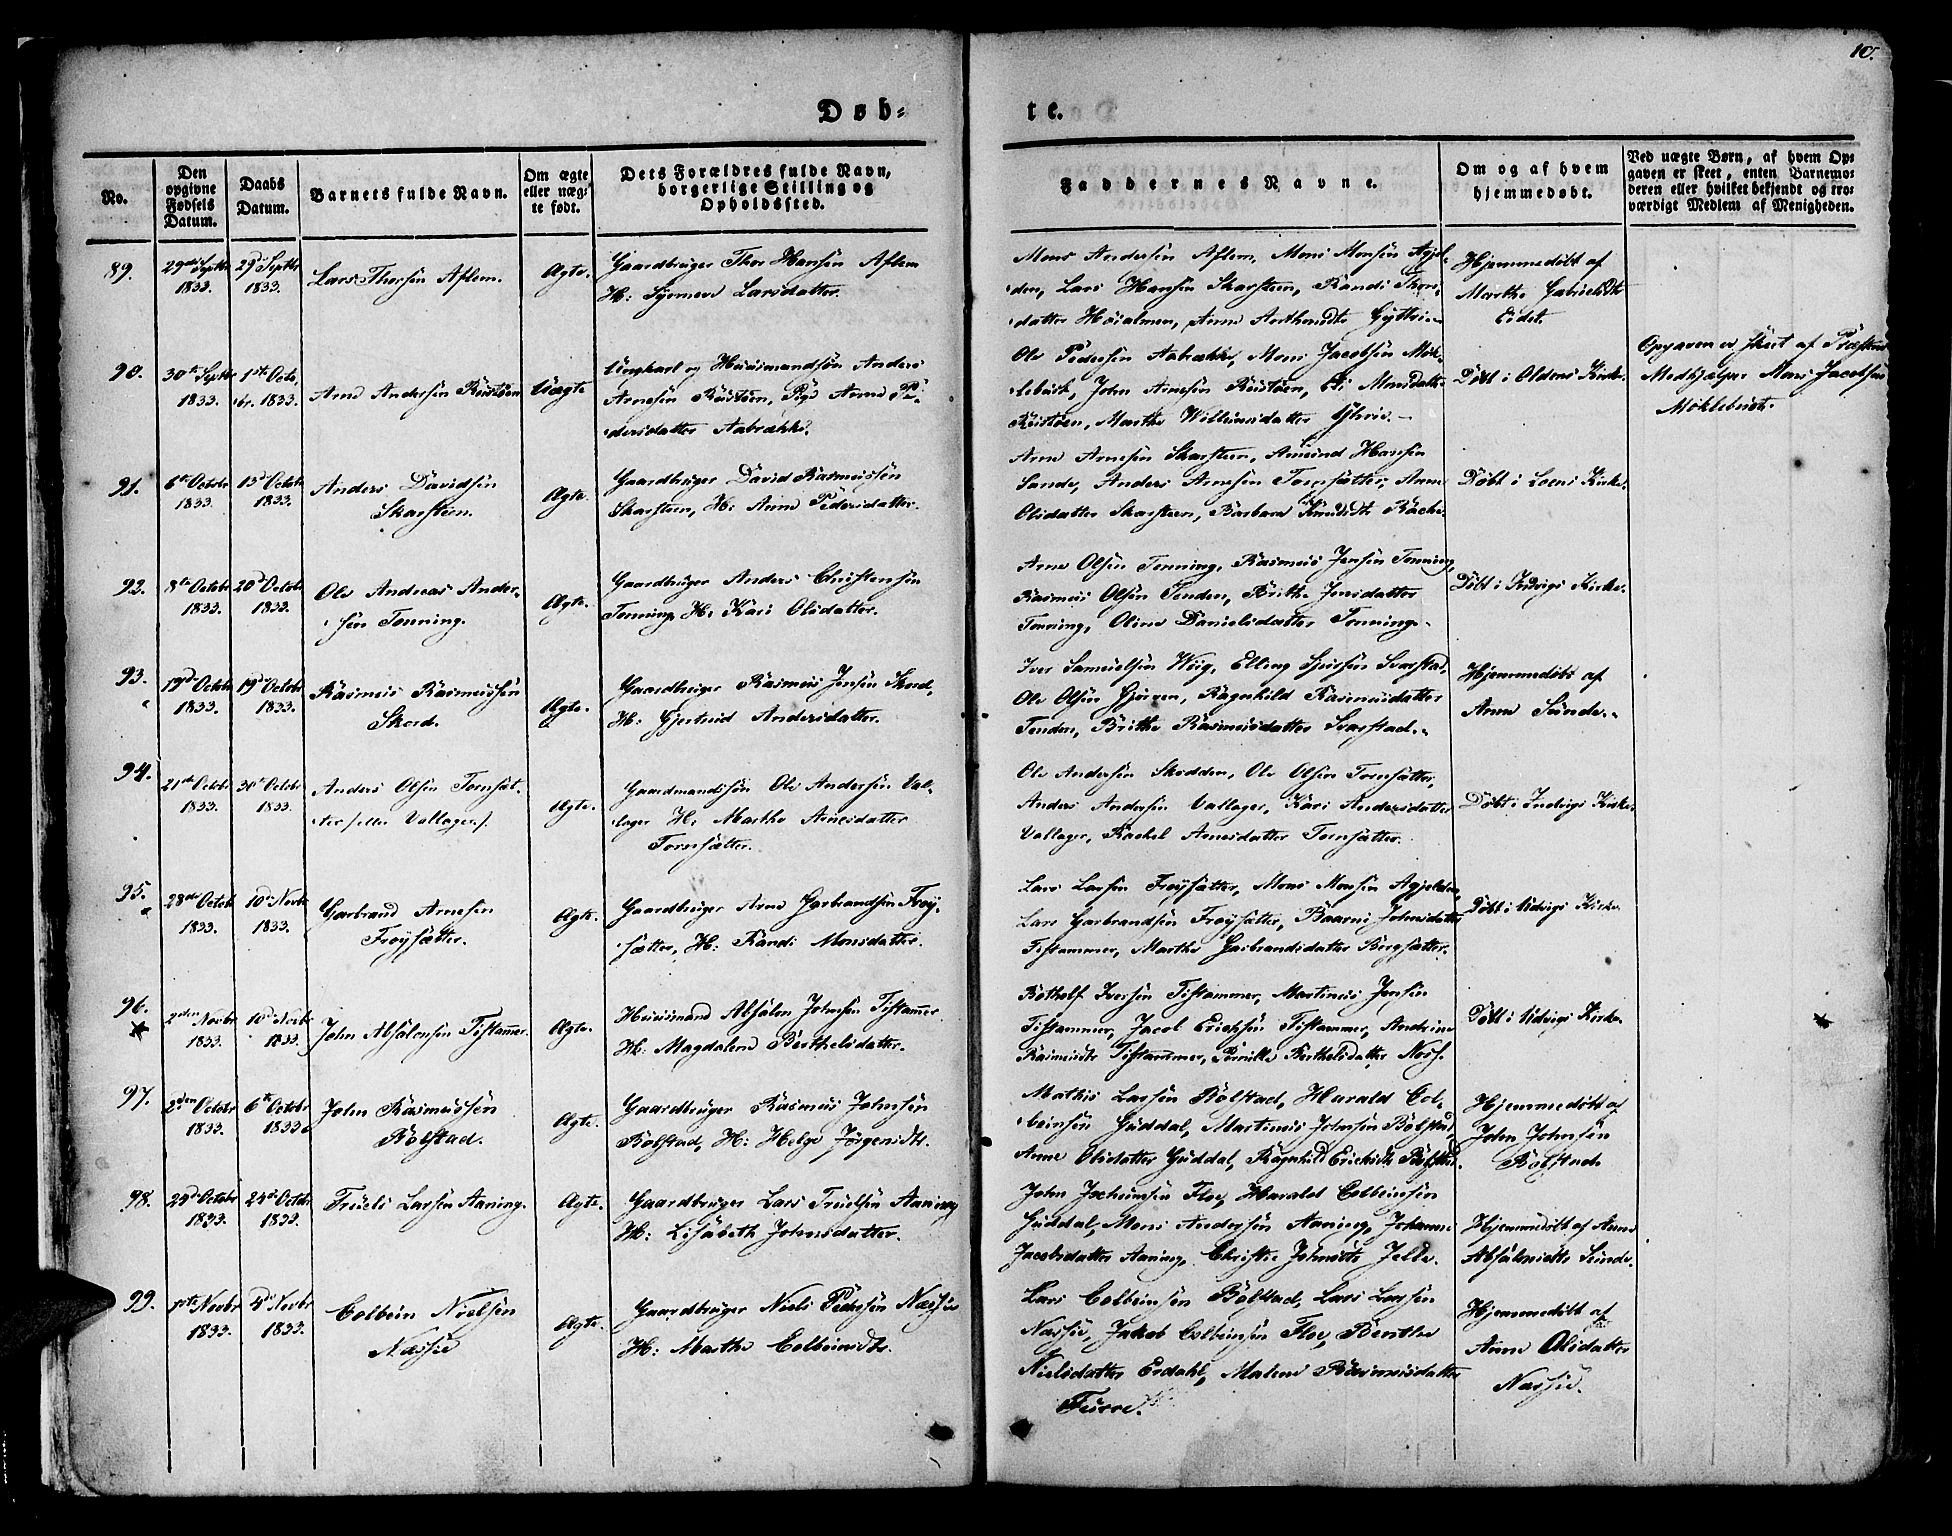 10.
Døb-
te.
No.
Den opgivne Fødsels Datum.
Daabs Datum.
Barnets fulde Navn.
Om ægte eller uægte født.
Dets Forældres fulde Navn, borgerlige Stilling og Opholdssted.
Faddernes Navne.
Om og af hvem hjemmedøbt.
Ved uægte Børn, af hvem Opgaven er skeet, enten Barnemoderen eller hvilket bekjendt og troværdigt Medlem af Menigheden.
89.
29de Septbr 1833.
29d Septbr 1833.
Lars Thorsen Aflem.
Ægte.
Gaardbruger Thor Hansen Aflem
H: Synneve Larsdatter.
Mons Andersen Aflem, Mons Monsen Agjel-
den, Lars Hansen Skarsteen, Randi Thors-
datter Høialmen, Anne
Hjemmedøbt af
Marthe Gabrielsdtr
Eidet.
90.
30te Septbr 1833.
1ste Octo-
br. 1833.
Arne Andersen Rustøen
Uægte
Ungkarl og Huusmandssøn Anders
Arnesen Rustøen, Pige Anne Pe-
dersdatter Aabrække.
Ole Pedersen Aabrække, Mons Jacobsen Møk-
lebust, John Arnesen Rustøen, Eli Monsdatter
Rustøen, Marthe Willumsdatter
Døbt i Oldens Kirke.
Opgaven er skeet af Præstens
Medhjælper Mons Jacobsen
Møklebust.
91.
6te Octobr 1833.
13d Octobr 1833.
Anders Davidsen
Skarsteen.
Ægte
Gaardbruger David Rasmussen
Skarsteen, H: Anne Pedersdatter.
Arne Arnesen Skarsteen, Amund Hansen
Sande, Anders Arnesen Tornsætter, Anne
Olsdatter Skarsteen, Barbara Knudsdtr Rache.
Døbt i Loens Kirke.
92.
8te Octobr 1833.
20d Octobr 1833.
Ole Andreas Ander-
sen Tonning.
Ægte.
Gaardbruger Anders Christensen
Tonning, H: Kari Olsdatter.
Arne Olsen Tonning, Rasmus Jensen Tonning,
Rasmus Olsen Tenden, Brithe Jensdatter
Tonning, Oline Danielsdatter Tonning.
Døbt i Indvigs Kirke.
93.
19d Octobr 1833.
19d Octobr 1833.
Rasmus Rasmussen
Skord.
Ægte.
Gaardbruger Rasmus Jensen Skord,
H: Gjertrud Andersdatter.
Iver Samuelsen Wiig, Elling Svarstad,
Ole Olsen Hjurven, Ragnhild Rasmusdatter
Tenden, Brithe Rasmusdatter Svarstad.
Hjemmedøbt af
Anne Sunde.
94.
21de Octobr 1833.
30te Octobr 1833.
Anders Olsen Tornsæt-
ter /: eller Vallager :/.
Ægte.
Gaardmandssøn Ole Andersen Val-
lager H: Marthe Arnesdatter
Tornsætter.
Ole Andersen Skedden, Ole Olsen Tornsætter,
Anders Andersen Vallager, Kari Andersdatter
Vallager, Rachel Arnesdatter Tornsætter.
Døbt i Indvigs Kirke.
95.
28de Octobr 1833.
10d Novbr 1833.
Garbrand Arnesen
Frøysætter.
Ægte.
Gaardbruger Arne Garbrandsen Frøy-
sætter, H: Randi Monsdatter.
Lars Larsen Frøysætter, Mons Monsen Agjelden,
Lars Garbrandsen Frøysætter, Johnsdatter
Tistammer, Marthe Garbrandsdatter Bergsætter.
Døbt i Udvigs Kirke
96.
2den Novbr 1833.
10d Novbr 1833.
John Absalonsen Tistammer.
Ægte.
Huusmand Absalon Johnsen Tistammer
H: Magdalene Berthelsdatter.
Botholf Iversen Tistammer, Martinus Jensen
Tistammer, Jacob Ericksen Tistammer, Andrine
Rasmusdtr Tistammer, Pernille Berthelsdatter
Døbt i Udvigs Kirke.
97.
2den Octobr 1833.
6te Octobr 1833.
John Rasmussen
Bolstad.
Ægte.
Gaardbruger Rasmus Johnsen
Bolstad, H: Helge Jørgensdtr.
Mathis Larsen Bolstad, Harald Col-
beinsen Guddal, Martinus Johnsen Bolstad,
Anne Olsdatter Guddal, Ragnhild Ericksdtr Bolstad.
Hjemmedøbt af
John Johnsen
Bolstad.
98.
24d Octobr 1833.
24de Octobr 1833.
Truels Larsen Aaning.
Ægte.
Gaardbruger Lars Truelsen Aaning
H: Lisabeth Johnsdatter.
John Jochumsen Floe, Harald Colbeinsen
Guddal, Mons Andersen Aaning, Johanne
Jacobsdatter Aaning, Christie Johnsdtr Jelle.
Hjemmedøbt af Anne
Absalonsdtr Sunde.
99.
1ste Novbr 1833.
3d Novbr 1833.
Colbein Nielsen
Næssie
Ægte.
Gaardbruger Niels Pedersen Næssie
H: Marthe Colbeinsdtr.
Lars Colbeinsen Bolstad, Lars Larsen
Næssie, Jakob Colbeinsen Floe, Benthe
Nielsdatter Erdahl, Malene Rasmusdatter
Furre.
Hjemmedøbt af
Anne Olsdatter
Næssie.